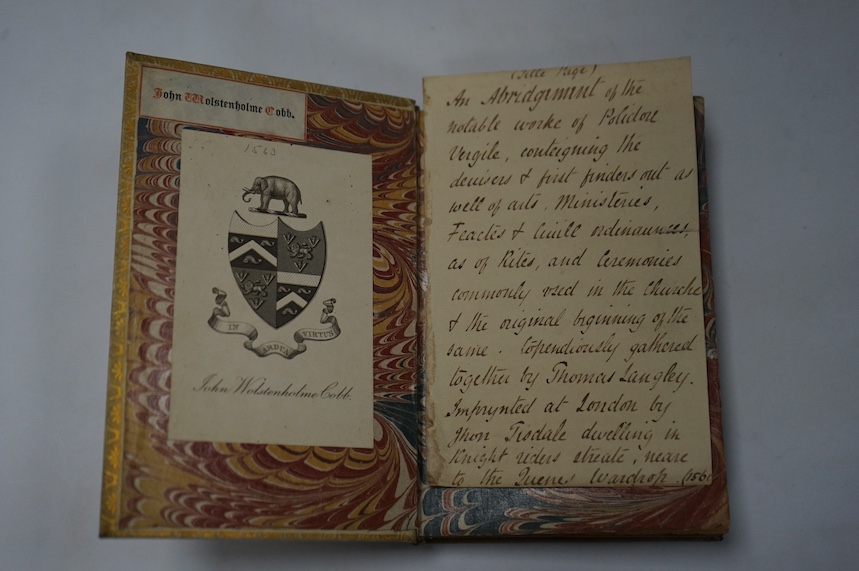 John Wolstenholme Cobb.
1563
IN ARDUA VIRTUS
John Wolstenholme Cobb.
(Title Page)
An Abridgement of the
notable worke of Polidore
Vergile, conteigning the
devisers & first finders out as
well of arts, Ministeries,
Feactes & Civile ordinaunces,
as of Rites, and Ceremonies
commonly vsed in the Churche
& the original beginning of the
same. Copendiously gathered
together by Thomas Langley.
Imprynted at London by
Jhon Tisdale dwelling in
Knight riders streate, neare
to the Quenes Wardrop.